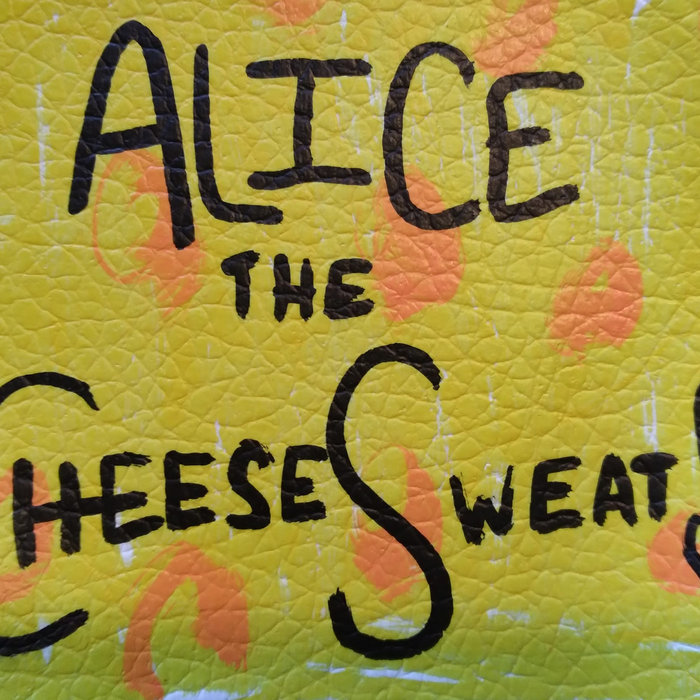 ALICE
THE
CHEESE SWEATS